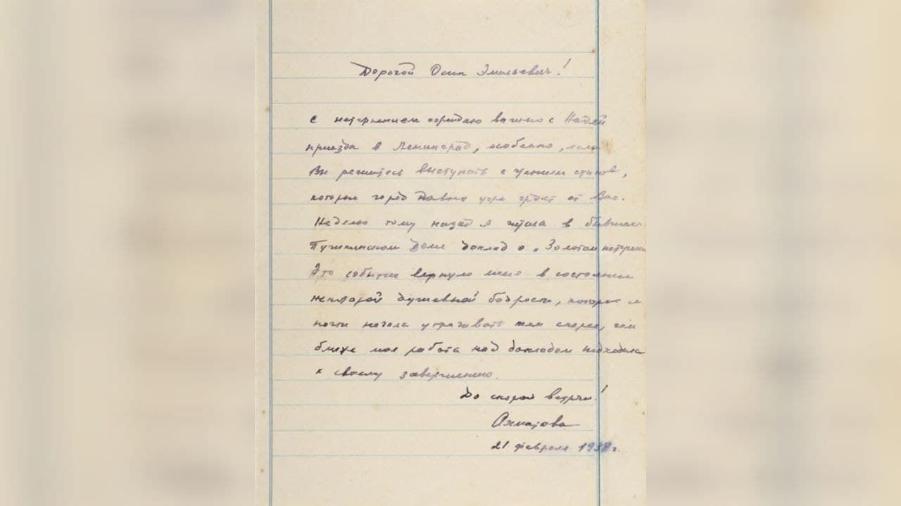 Дорогой Осип Эмильевич!
С нетерпением ожидаю вашего с Надей
приезда в Ленинград, особенно, если
Вы решитесь выступать с чтением стихов,
которых город давно уже ждет от Вас.
Неделю тому назад я читала в бывшем
Пушкинском Доме доклад о „Золотом петушке
Это событие вернуло меня в состояние
некоторой душевной бодрости, которое я
почти начала утрачивать тем скорее, чем
ближе моя работа над докладом подходила
к своему завершению.
До скорой встречи!
Ахматова
21 февраля г.